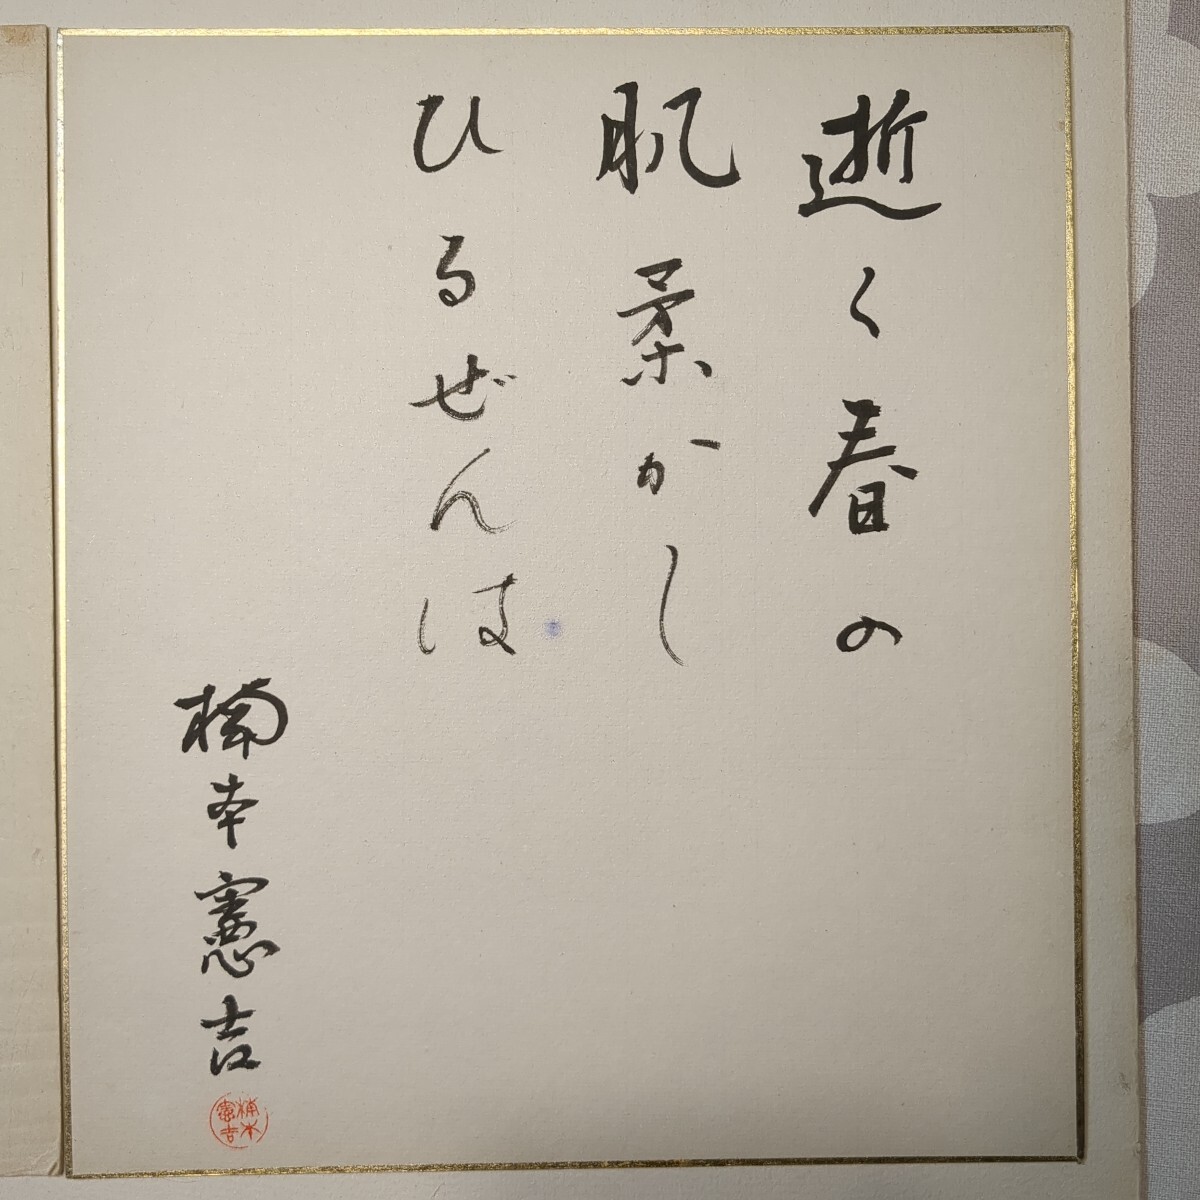 逝く春の
肌柔かし
ひるぜんは
楠本憲吉
楠本
憲吉